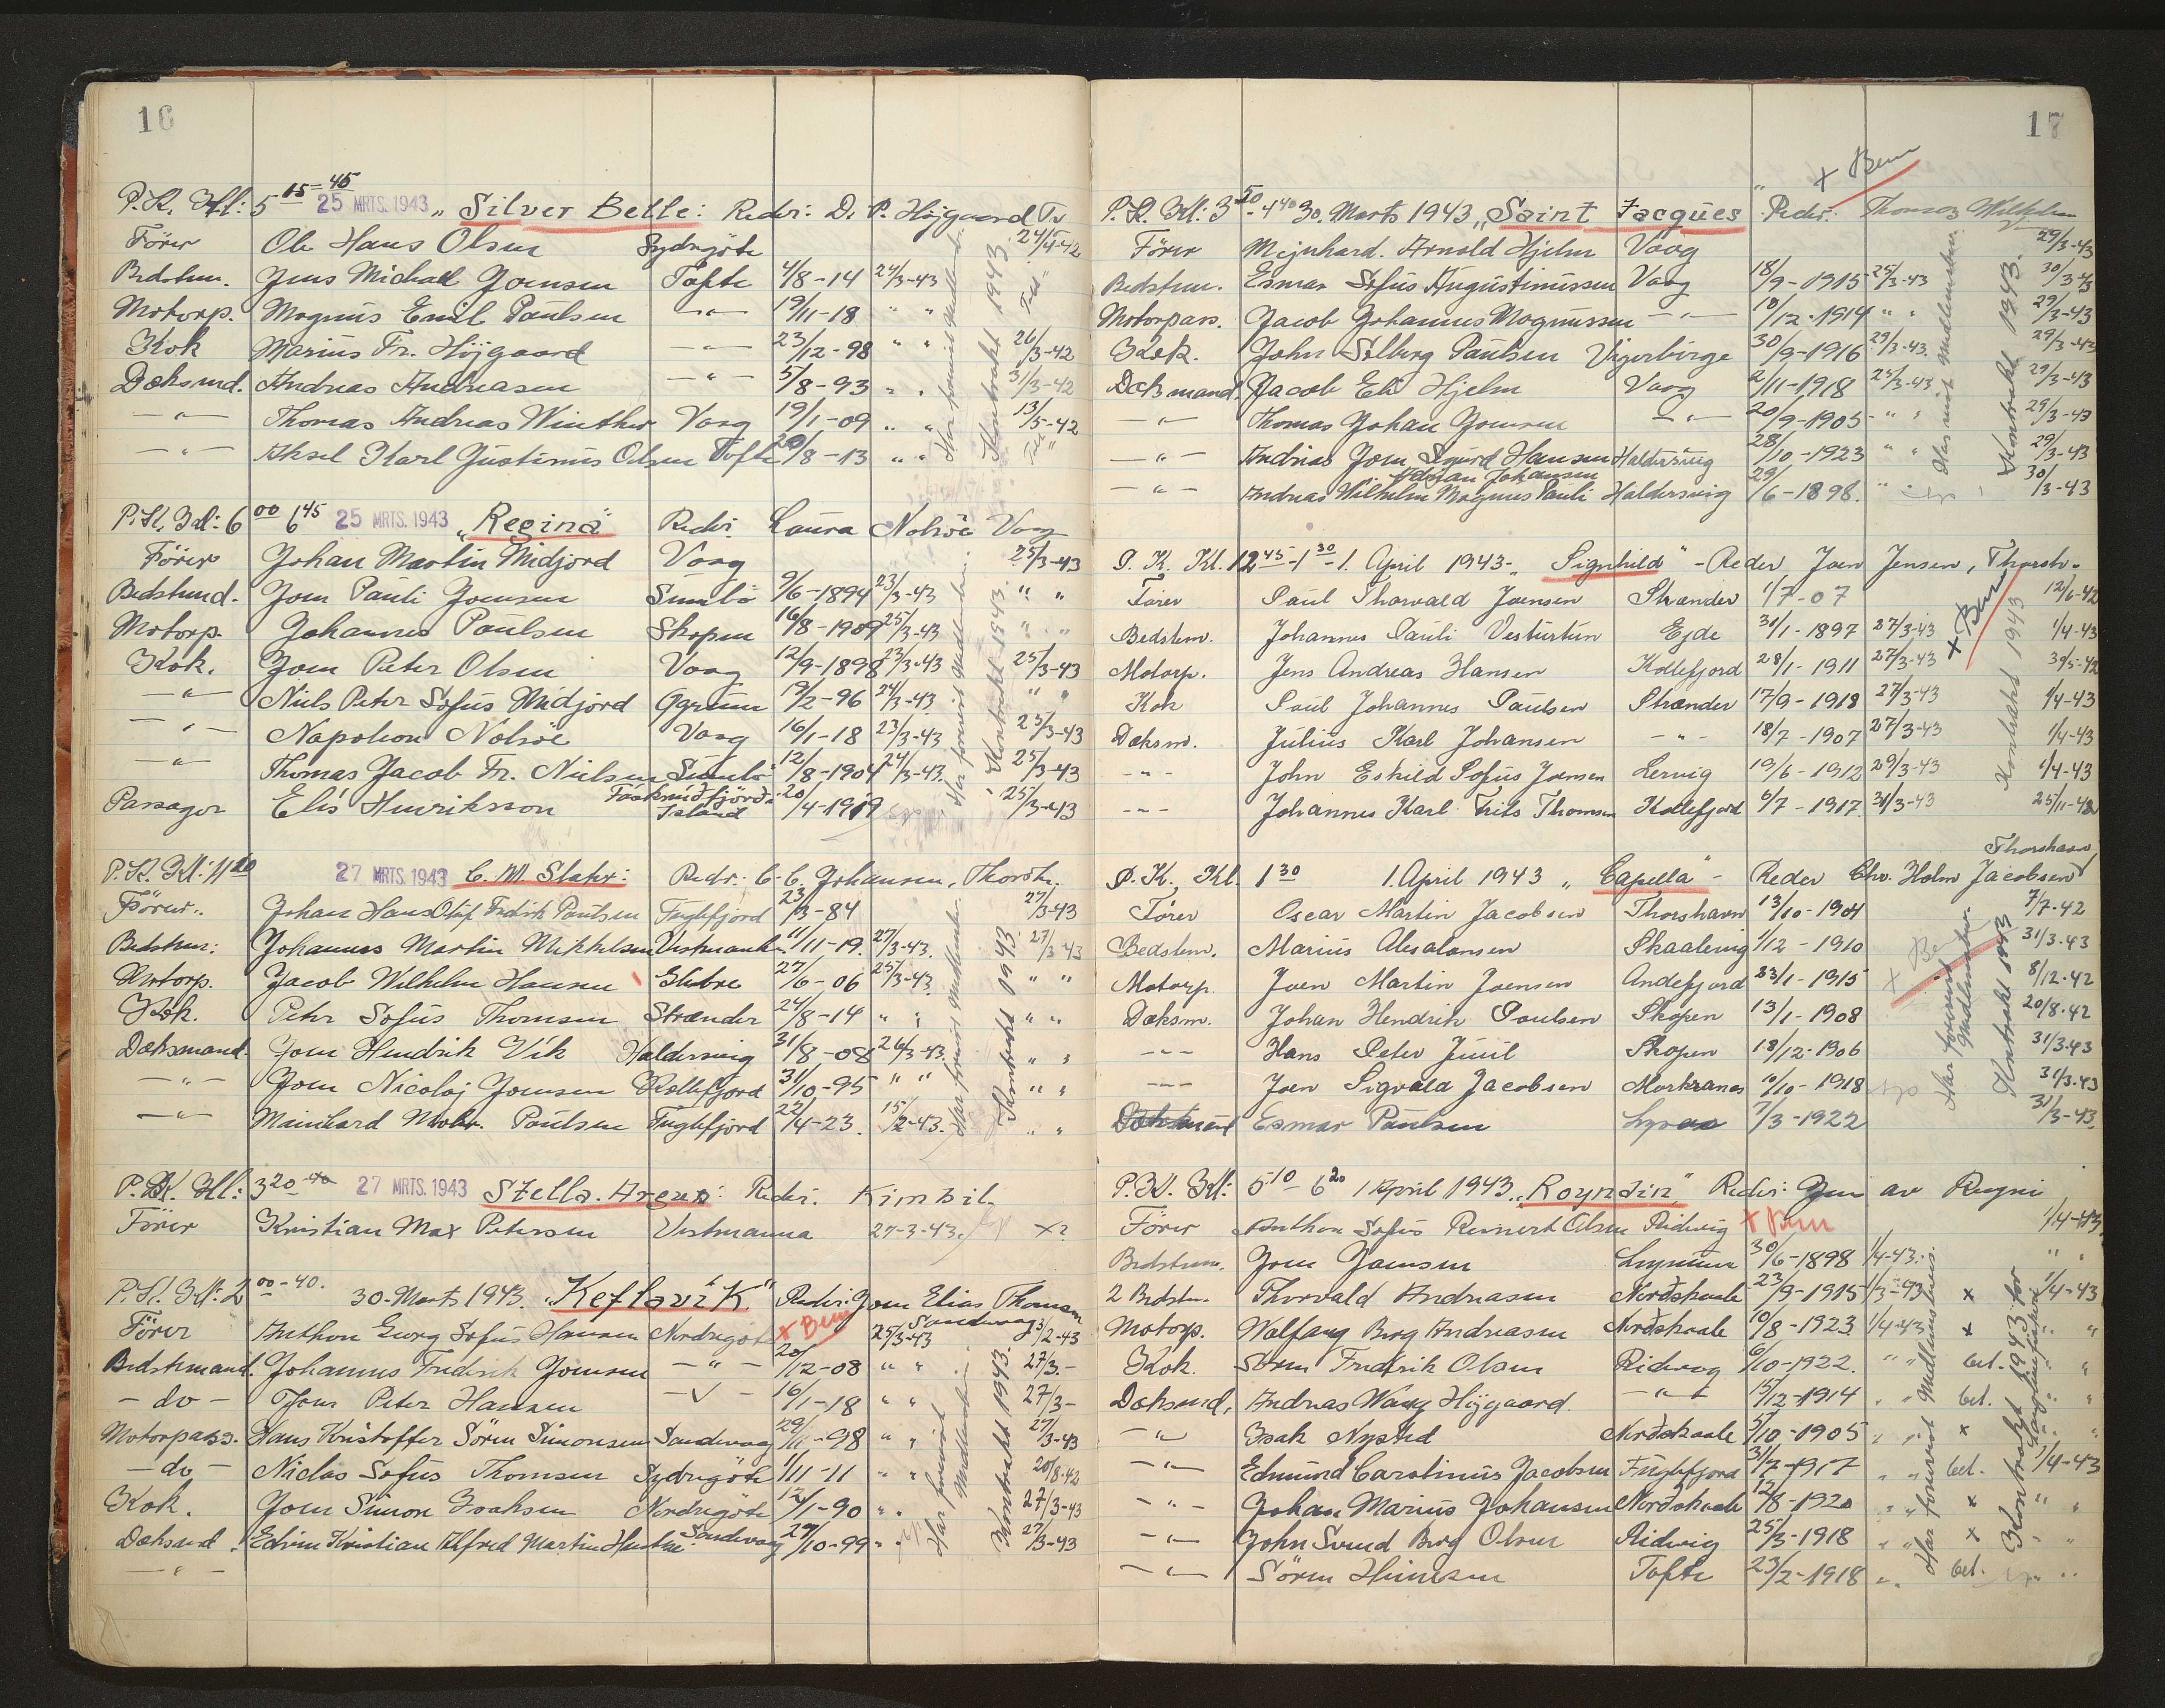 16
P.K. Kl: 5 15-45 25 MRTS. 1943 „Silver Belle: Reder: D. P. Højgaard Tv
Förer Ole Hans Olsen Sydrigöte 24/4-42
Bedstem. Jens Michael Joensen Tofte 4/8-14 24/3-43
Motorp. Magnus Emil Paulsen -"- 19/11-18 " "
Kok Marius Fr. Højgaard -"- 23/12-98 " " 26/3-42
Dæksmd. Andreas Andreasen -"- 5/8-93 " " 31/3-42
-"- Thomas Andreas Winther Vaag 19/1-09 " " 13/5-42
-"- Aksel Karl Justinus Olsen Tofte 20/8-13 " "
Har fornevnt Medlemsbr. Kontrakt 1943.
P.K. Kl: 6 00 6 45 25 MRTS. 1943 „Regina" Reder Laura Nolsöe Vaag
Förer Johan Martin Midjord Vaag 25/3-43
Bedstemd. Joen Pauli Joensen Sumbö 9/6-1894 23/3-43 " "
Motorp. Johannes Poulsen Skopen 16/8-1909 25/3-43 " "
Kok. Joen Peter Olsen Vaag 12/9-1898 23/3-43 25/3-43
-"- Niels Peter Sofus Midjord Porkere 19/2-96 24/3-43 " "
-"- Napoleon Nolsöe Vaag 16/1-18 23/3-43 23/3-43
-"- Thomas Jacob Fr. Nielsen Sumbö 12/8-1904 24/3-43 25/3-43
Passager Elis Henriksson Faskrudfjörd Island 20/4-1919 25/3-43
Har fornevnt Medlemsbr. Kontrakt 1943.
P.K. Kl: 11 20 27 MRTS. 1943 C. M. Slater: Reder: C. C. Johansen, Thorsh.
Förer. Johan Hans Oluf Fredrik Poulsen Fuglefjord 23/3-84 27/3-43
Bedstem: Johannes Martin Mikkelsen Vestmanh. 11/11-19. 27/3-43. 27/3-43
Motorp. Jacob Wilhelm Hansen Glibre 27/6-06 25/3-43 " "
Kok. Peter Sofus Thomsen Strænder 24/8-14 " " " "
Dæksmand. Joen Hendrik Vik Haldersvig 31/8-08 26/3-43 " "
-"- Joen Nicolaj Joensen Kollefjord 31/10-95 " " " "
-"- Mainhard Poulsen Fuglefjord 22/4-23. 15/2-43. " "
Har fornevnt Medlemsbr. Kontrakt 1943
P.K. Kl: 3 20-40 27 MRTS. 1943 Stella Argus: Reder: Kimbil.
Förer Kristian Max Petersen Vestmanna 27-3-43. x?
P.K. Kl: 2 00-40. 30. Marts 1943. „Keflavík" Reder: Joen Elias Thomsen Sandevaag
Förer Anthon Georg Sofus Hansen Nordrigöte x Bem 25/3-43 3/2-43
Bedstemand. Johannes Fredrik Joensen -"- 20/12-08 " " 27/3-
-do- Joen Peter Hansen -"- 16/1-18 " " 27/3-
Motorpass. Hans Kristoffer Sören Simonsen Sandevaag 29/11-98 " " 27/3-43
-do- Niclas Sofus Thomsen Sydrigöte 1/11-11 " " 20/8-42
Kok. Joen Simon Isaksen Nordrigöte 12/1-90 " " 27/3-43
Dæksmd. Edvin Kristian Alfred Martin Sandevaag 27/10-99 " " 27/3-43
-"-
Har fornevnt Medlemsbr. Kontrakt 1943.
17
x Bem
P.K. Kl: 3 50-4 40 30. Marts 1943 „Saint Jacques" Reder: Thomas Wilhelm
Förer Mejnhard. Arnold Hjelm Vaag 29/3-43
Bedstem. Esmar Sofus Augustinussen Vaag 18/9-1915 25/3-43 30/3-43
Motorpass. Jacob Johannes Magnussen -"- 10/12-1914 " " 29/3-43
Kok. John Solberg Paulsen Vágerbirge 30/9-1916 29/3-43. 29/3-43
Dæksmand. Jacob Eli Hjelm Vaag 2/11-1918 25/3-43 29/3-43
-"- Thomas Johan Joensen -"- 20/9-1905 " " 29/3-43
-"- Andrias Joen Sigurd Hansen Haldersvig 28/10-1923 " " 29/3-43
-"- Andreas Wilhelm Magnus Pauli Johansen Haldersvig 29/6-1898. " 30/3-43
Har fornt Medlemsbr. Kontrakt 1943.
P. K. Kl. 12 45-1 30-1. April 1943- „Signhild" - Reder Joen Jensen, Thorsh.
Förer Paul Thorvald Joensen Strænder 1/7-07 12/6-42
Bedstem. Johannes Pauli Vesturtún Ejde 31/1-1897 27/3-43 x Bem 1/4-43
Motorp. Jens Andreas Hansen Kollefjord 28/1-1911 27/3-43 30/5-42
Kok Poul Johannes Poulsen Strænder 17/9-1918 27/3-43 1/4-43
Dæksm. Julius Karl Johansen -"- 18/7-1907 27/3-43 1/4-43
-"- John Eskild Sofus Joensen Lervig 19/6-1912 29/3-43 1/4-43
-"- Johannes Karl Frits Thomsen Kollefjord 6/7-1917 31/3-43 25/11-42
Kontrakt 1943
P.K., Kl. 1 30 1. April 1943 „Capella" - Reder Chr. Holm Jacobsen Thorshavn
Förer Oscar Martin Jacobsen Thorshavn 13/10-1904 7/7-42
Bedstem. Marius Absalonsen Skaalevig 1/12-1910 31/3-43
Motorp. Joen Martin Joensen Andefjord 23/1-1915 8/12-42
Dæksm. Johan Hendrik Poulsen Skopen 13/1-1908 20/8-42
-"- Hans Peter Juul Skopen 18/12-1906 31/3-43
-"- Joen Sigvald Jacobsen Morkranes 10/10-1918 31/3-43
Dæksmand Esmar Poulsen 7/3-1922 31/3-43
Har fornevnt Medlemsbr. Kontrakt 1943
P.K. Kl: 5 10-6 20 1 April 1943 „Royndin" Reder: Joen av Reyni
Förer Anthon Sofus Reinert Olsen Ridevig x Bem 1/4-43
Bedstem. Joen Joensen 30/6-1898 1/4-43. " "
2 Bedstm. Thorvald Andreasen Norðskaale 23/9-1915 1/3-43 x 1/4-43
Motorp. Walfang Berg Andreasen Norðskaale 10/8-1923 1/4-43 x " "
Kok. Sören Fredrik Olsen Ridevig 6/10-1922. " " bet. "
Dæksmd. Andreas Wang Højgaard. -"- 15/12-1914 " " bet. "
-"- Isak Nysted Norðskaale 5/10-1905 " " x "
-"- Edmund Carolinus Jacobsen Fuglefjord 31/7-1917 " " bet. 1/4-43
-"- Johan Marius Johansen Norðskaale 12/8-1920 " " x " "
-"- John Svend Berg Olsen Ridevig 25/3-1918 " " x "
-"- Sören Heinesen Tofte 23/2-1918 " bet. " "
Har fornevnt Medlemsbevis. Kontrakt 1943 for